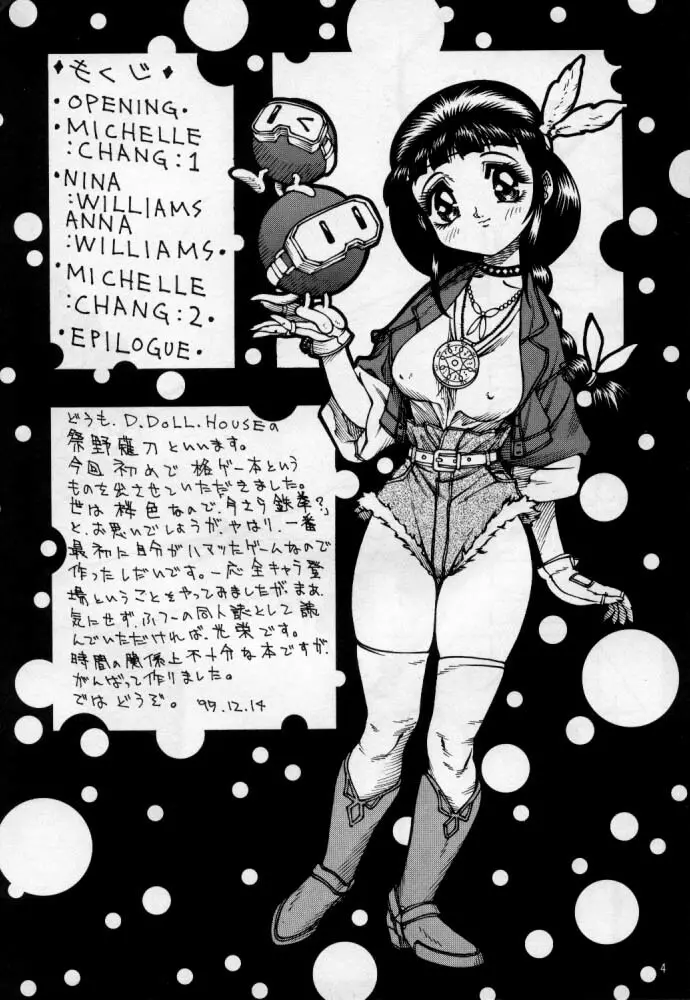 ♦もくじ♦
・OPENING・
・MICHELLE
:CHANG:1
・NINA
:WILLIAMS
ANNA
:WILLIAMS・
・MICHELLE
:CHANG:2・
・EPILOGUE・
どうも、D.DOLL.HOUSEの
祭野薙刀といいます。
今回初めて格ゲー本という
ものを出させていただきました。
世は 色なので、「今さら鉄拳?」
と、お思いでしょうが、やはり、一番
最初に自分がハマッたゲームなので
作ったしだいです。一応全キャラ登
場ということをやってみましたが、まあ、
気にせず、ふつーの同人誌として読
んでいただければ、光栄です。
時間の関係上不十分な本ですが、
がんばって作りました。
ではどうぞ。 '97.12.14
4